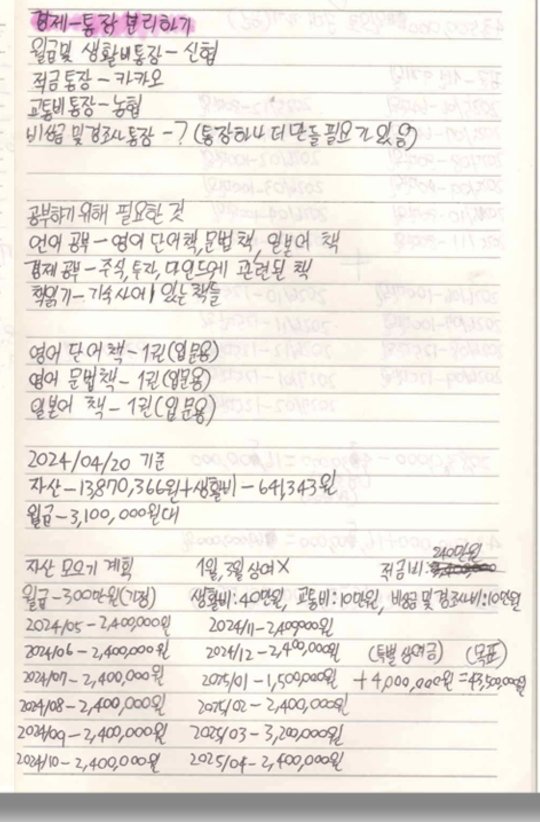 경제-통장 분리하기
월급 및 생활비통장 - 신협
적금통장 - 카카오
교통비통장 - 농협
비상금 및 경조사통장 - ? (통장 하나 더 만들 필요가 있음)
공부하기 위해 필요한 것
언어 공부 - 영어 단어책, 문법 책, 일본어 책
경제 공부 - 주식, 투자, 마인드에 관련된 책
책읽기 - 기숙사에 있는 책들
영어 단어 책 - 1권 (입문용)
영어 문법책 - 1권 (입문용)
일본어 책 - 1권 (입문용)
2024/04/20 기준
자산 - 13,870,366원 + 생활비 - 641,343원
월급 - 3,100,000원대
240만원
자산 모으기 계획 1월, 3월 상여X 적금비:
월급 - 300만원 (가정) 생활비: 40만원, 교통비: 10만원, 비상금 및 경조사비: 10만원
2024/05 - 2,400,000원 2024/11 - 2,400,000원
2024/06 - 2,400,000원 2024/12 - 2,400,000원 (특별 상여금) (목표)
2024/07 - 2,400,000원 2025/01 - 1,500,000원 + 4,000,000원 = 43,500,000원
2024/08 - 2,400,000원 2025/02 - 2,400,000원
2024/09 - 2,400,000원 2025/03 - 3,200,000원
2024/10 - 2,400,000원 2025/04 - 2,400,000원